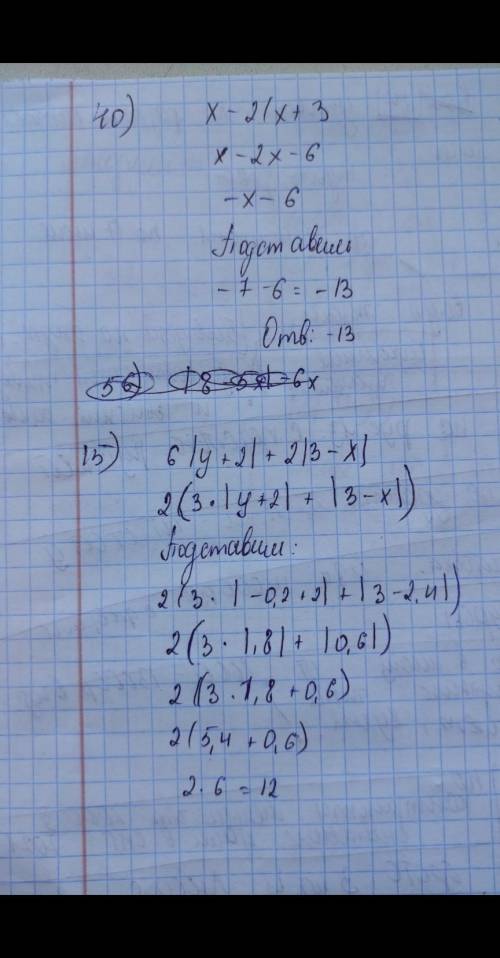 40) x - 2(x + 3
x - 2x - 6
- x - 6
Подставим
- 7 - 6 = - 13
Отв: -13
56) |8 - 5x| - 6x
15) 6|y + 2| + 2|3 - x|
2(3 · |y + 2| + |3 - x|)
Подставим:
2(3 · |-0,2 + 2| + |3 - 2,4|)
2(3 · |1,8| + |0,6|)
2((3 · 1,8 + 0,6)
2(5,4 + 0,6)
2 · 6 = 12